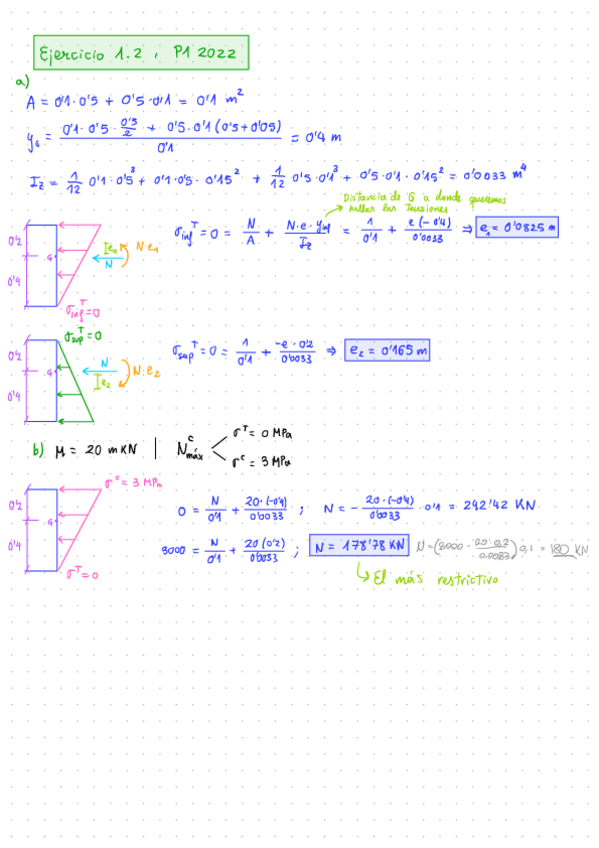 Ejercicio 1.2, P1 2022
a)
A = 0'1·0'5 + 0'5·0'1 = 0'1 m²
y_G = (0'1·0'5·0'5/2 + 0'5·0'1(0'5+0'05))/0'1 = 0'4 m
I_z = 1/12 0'1·0'5³ + 0'1·0'5·0'15² + 1/12 0'5·0'1³ + 0'5·0'1·0'15² = 0'0033 m⁴
Distancia de G a donde queremos
hallar las Tensiones
σ_inf^T = 0 = N/A + N·e·y_inf/I_z = 1/0'1 + e(-0'4)/0'0033 ⇒ e₁ = 0'0825 m
0'2
0'4
G
I e₁
N
N·e₁
σ_inf^T = 0
σ_sup^T = 0
0'2
0'4
G
N
I e₂
N·e₂
σ_sup^T = 0 = 1/0'1 + -e·0'2/0'0033 ⇒ e₂ = 0'165 m
b) M = 20 mKN | N_máx^c
σ^T = 0 MPa
σ^c = 3 MPa
σ^c = 3 MPa
0'2
0'4
G
σ^T = 0
0 = N/0'1 + 20·(-0'4)/0'0033 ; N = - 20·(-0'4)/0'0033 · 0'1 = 242'42 KN
3000 = N/0'1 + 20(0'2)/0'0033 ; N = 178'78 KN N=(3000 - 20·0.2/0.0033)0,1 = 180 KN
El más restrictivo